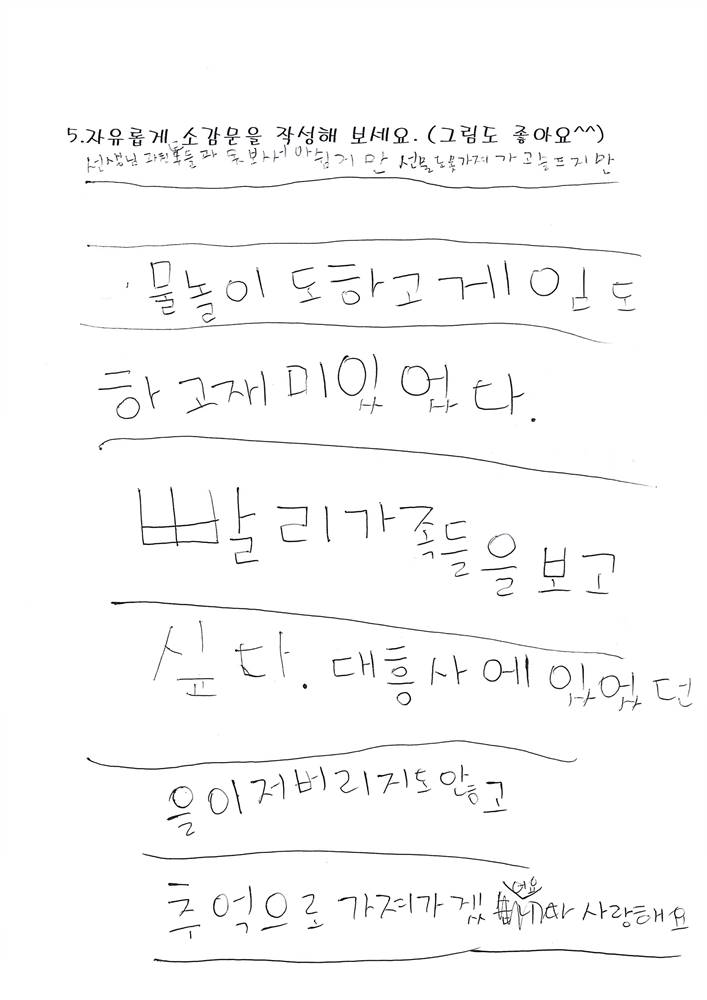 5.자유롭게 소감문을 작성해 보세요. (그림도 좋아요^^)
선생님 과 헤어 아쉽지만 선물도 못가져가고슬프지만
물놀이도하고게임도
하고재미있었다.
빨리가족들을보고
싶다. 대흥사에있었던
을아저버리지도안흥고
추억으로 가져가겠어요 사랑해요